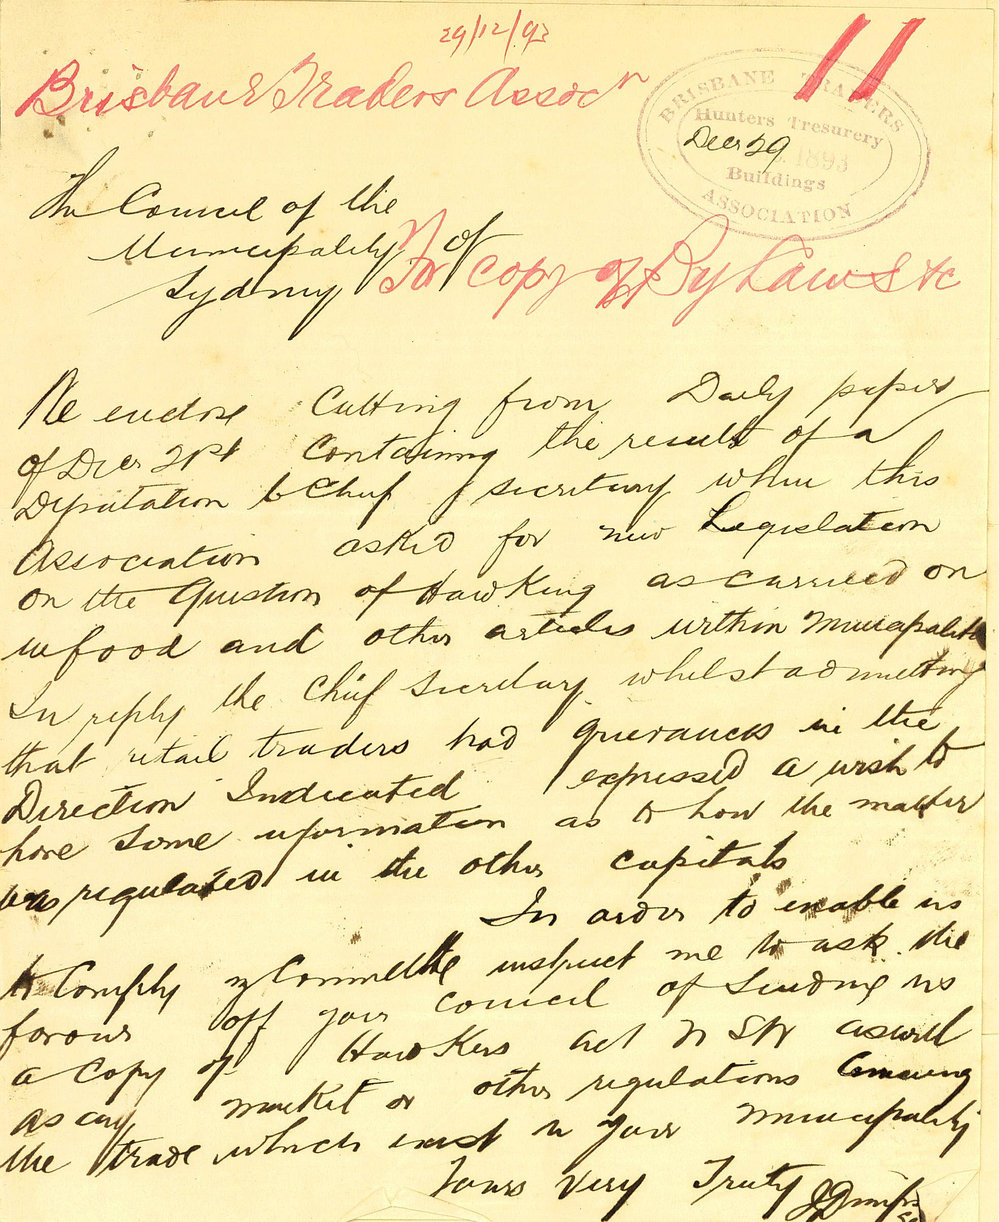 29/12/93
11
Brisbane Traders Assocn
BRISBANE TRADERS
Hunters Tresurery
Decr 29 1893
Buildings
ASSOCIATION
The Council of the
Municipality of
Sydney
For copy of By Laws &c
We enclose Cutting from Daily papers
of Decr 21st Containing the result of a
Deputation to Chief Secretary when this
Association asked for new Legislation
on the Question of Hawking as carried on
in food and other articles within
In reply the Chief Secretary whilst admitting
that retail traders had grievances in the
Direction Indicated expressed a wish to
have some information as to how the matter
was regulated in the other capitals
In order to enable us
to Comply my Committe instruct me to ask the
favour off your Council of Sending us
a Copy of Hawkers act N S W as well
as any market or other regulations
the trade which exist in your Municipality
Yours Very Truly